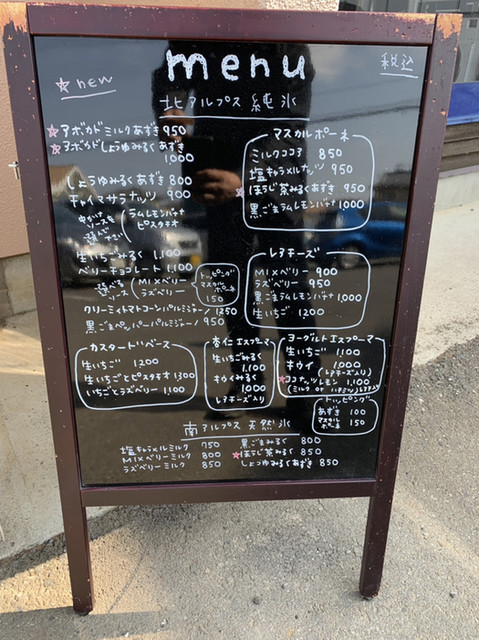 menu
☆new
税込
北アルプス 純氷
☆アボカドミルクあずき 950
☆アボカドしょうゆみるくあずき
1,000
しょうゆみるくあずき 800
チャイマサラナッツ 900
中かけ
ソースを
選んで下さい
ラムレモンバナナ
ピスタチオ
生いちごみるく 1,100
ベリーチョコレート 1,100
選べる
ソース
MIXベリー
ラズベリー
トッピング
マスカル
ポーネ
150
クリーミィトマトコーンパルミジャーノ 1250
黒ごまペッパーパルミジャーノ 950
マスカルポーネ
ミルクココア 850
塩キャラメルナッツ 950
☆ほうじ茶みるくあずき 950
黒ごまラムレモンバナナ 1,000
レアチーズ
MIXベリー 900
ラズベリー 950
黒ごまラムレモンバナナ 1,000
生いちご 1200
カスタードベース
生いちご 1200
生いちごとピスタチオ 1300
いちごとラズベリー 1,100
杏仁エスプーマ
生いちごみるく
1,100
キウイみるく
1,000
レアチーズ入り
ヨーグルトエスプーマ
生いちご 1,100
キウイ 1,000
(レアチーズ入り)
☆ココナッツレモン 1,100
トッピング
あずき 100
マスカル
ポーネ 150
南アルプス 天然氷
塩キャラメルミルク 750
MIXベリーミルク 800
ラズベリーミルク 850
黒ごまみるく 800
☆ほうじ茶みるく 850
しょうゆみるくあずき 850